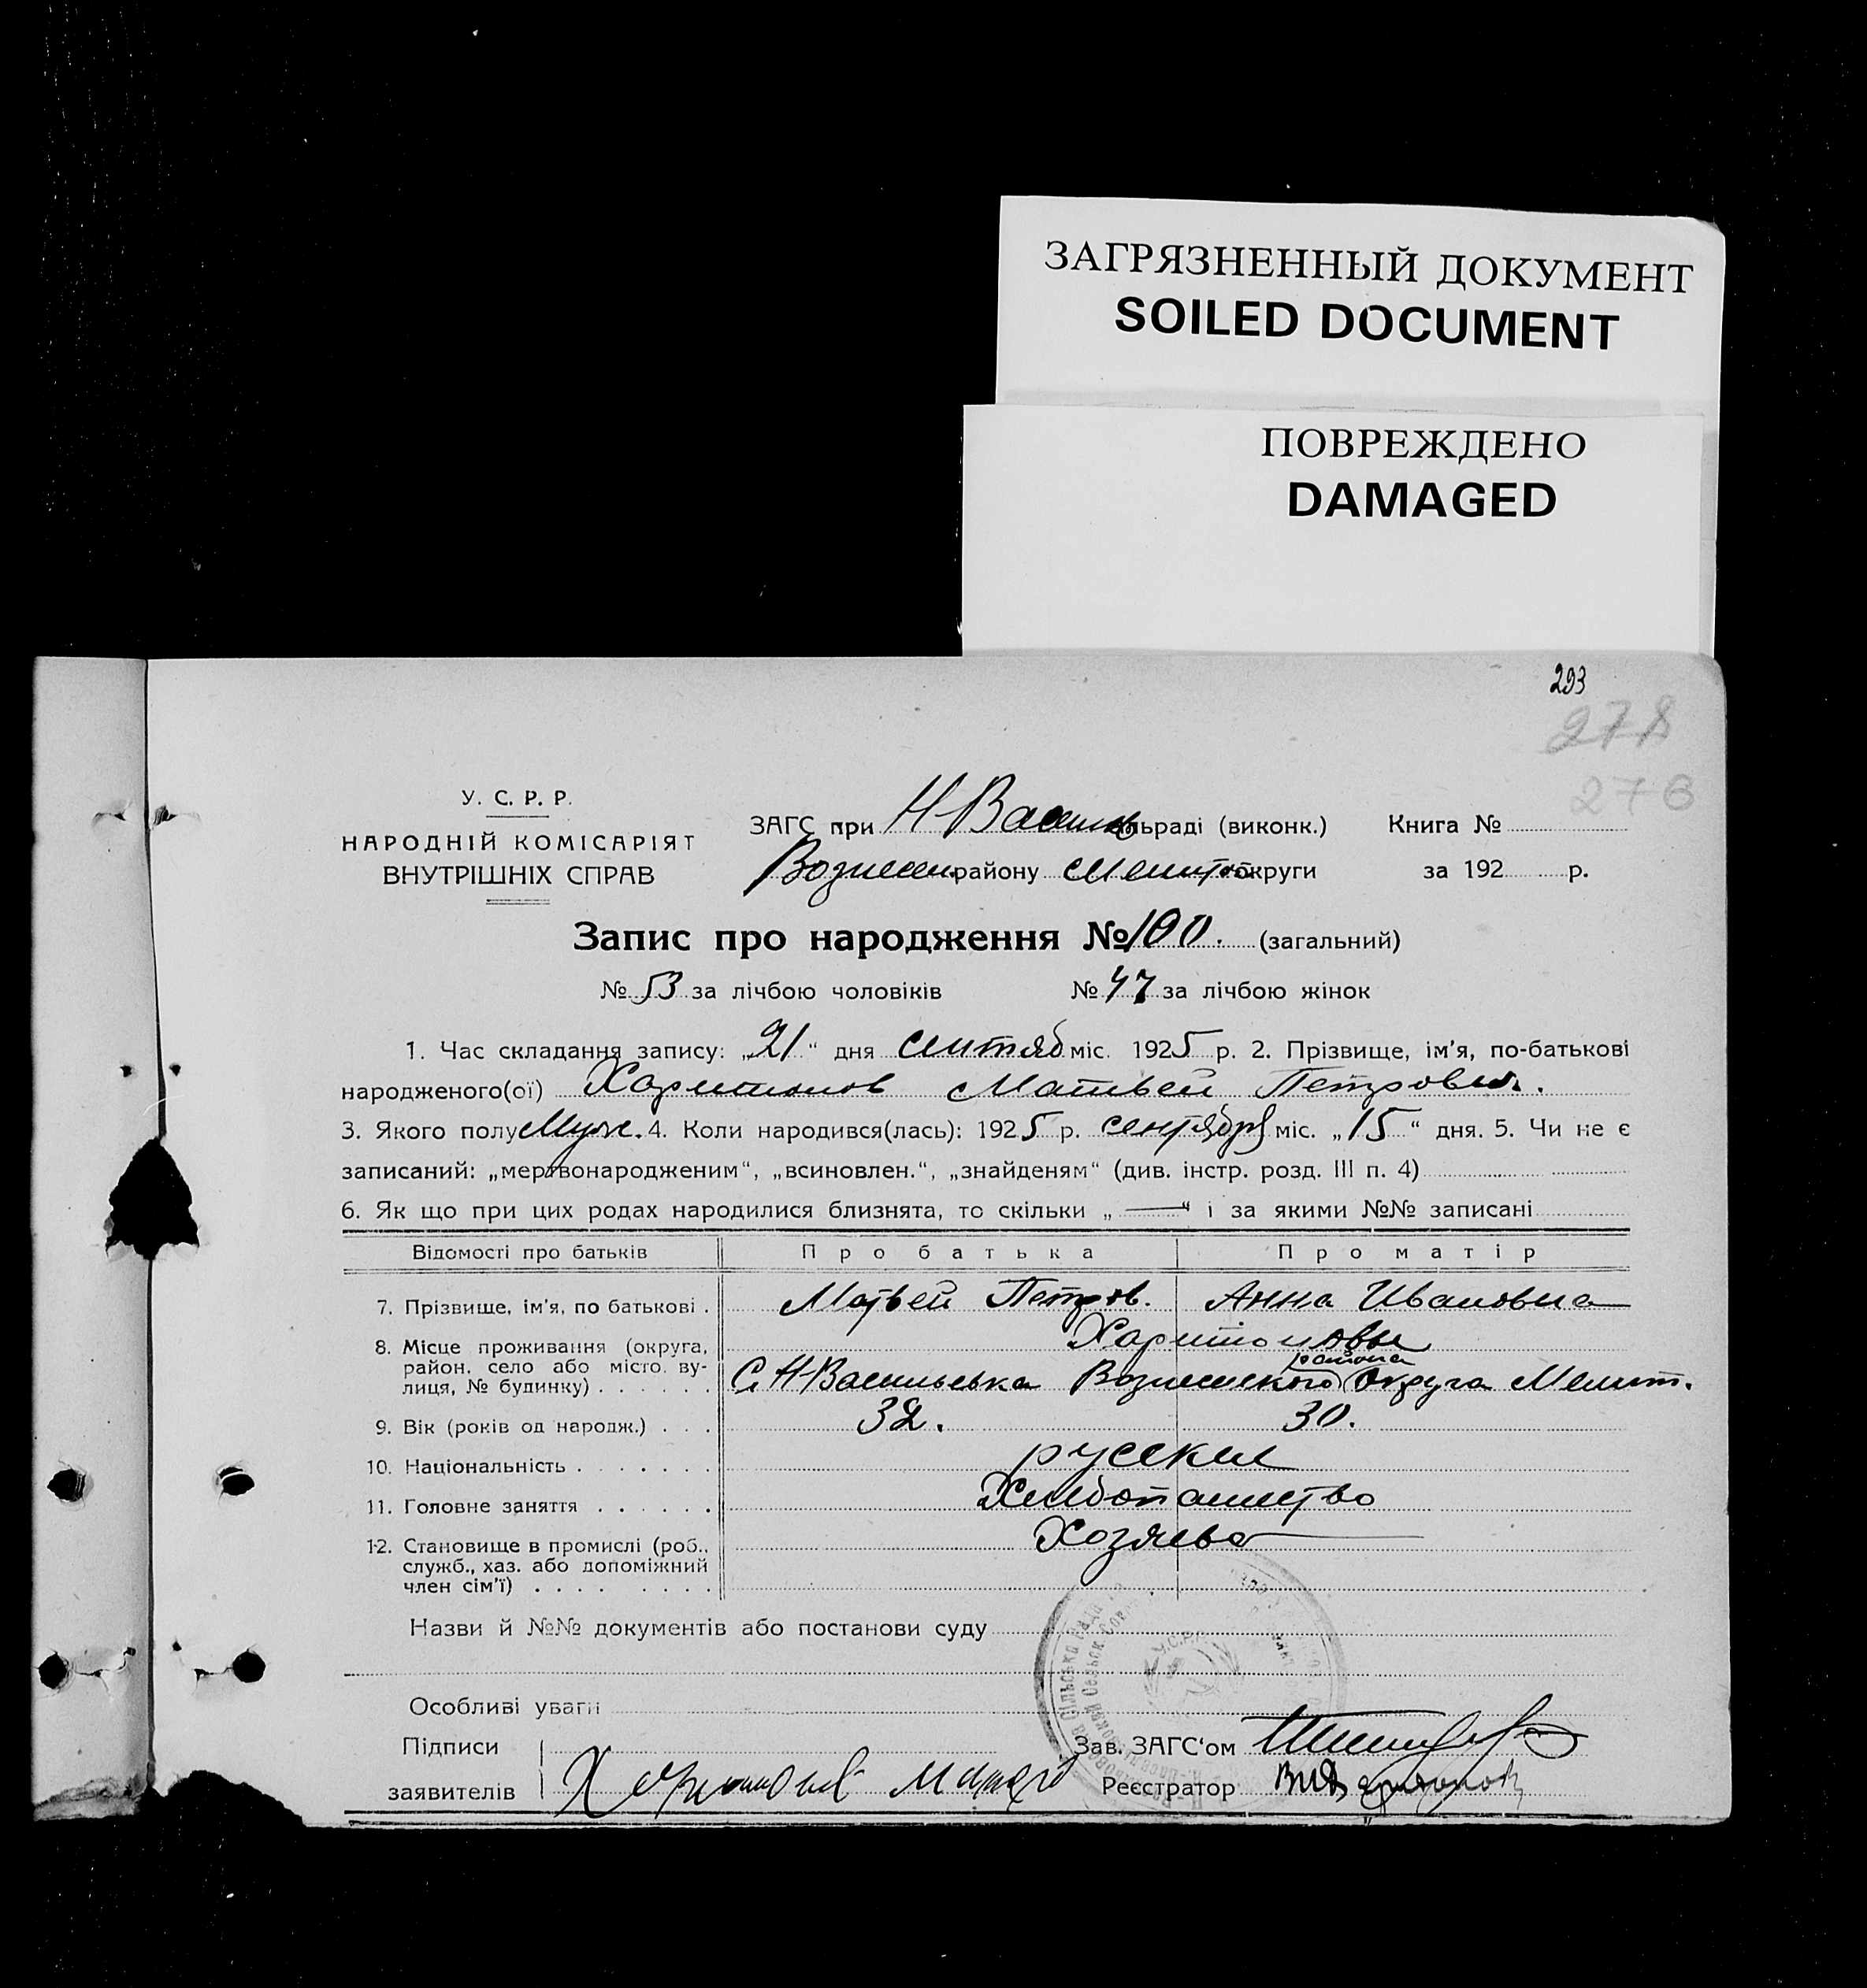 ЗАГРЯЗНЕННЫЙ ДОКУМЕНТ
SOILED DOCUMENT
ПОВРЕЖДЕНО
DAMAGED
293
278
276
У. С. Р. Р.
НАРОДНІЙ КОМІСАРІЯТ
ВНУТРІШНІХ СПРАВ
ЗАГС при Н Васильраді (виконк.) Книга №
Вознесен. району Мелитоп округи за 192 р.
Запис про народження № 100. (загальний)
№ 53 за лічбою чоловіків № 47 за лічбою жінок
1. Час складання запису: „21“ дня сентяб міс. 1925 р. 2. Прізвище, ім'я, по-батькові
народженого(ої) Харитонов Матвей Петрович.
3. Якого полу Муж. 4. Коли народився(лась): 1925 р. сентября міс. „15“ дня. 5. Чи не є
записаний: „мертвонародженим“, „всиновлен.“, „знайденям“ (див. інстр. розд. III п. 4)
6. Як що при цих родах народилися близнята, то скільки „—“ і за якими №№ записані
Відомості про батьків Про батька Про матір
7. Прізвище, ім'я, по батькові . Матвей Петров. Анна Ивановна
Харитоновы
8. Місце проживання (округа,
район, село або місто, ву-
лиця, № будинку) . . . . . . С. Н Васильевка Вознесенского района Округа Мелит.
9. Вік (років од народж.) . . . 32. 30.
10. Національність . . . . . . . русския
11. Головне заняття . . . . . . Хлебопашество
12. Становище в промислі (роб.,
служб., хаз. або допоміжний
член сім'ї) . . . . . . . . Хозяева
Назви й №№ документів або постанови суду
Особливі уваги
Підписи
заявителів Харитонов Матвей
Зав. ЗАГС'ом
Реєстратор
У.С.Р.Р.